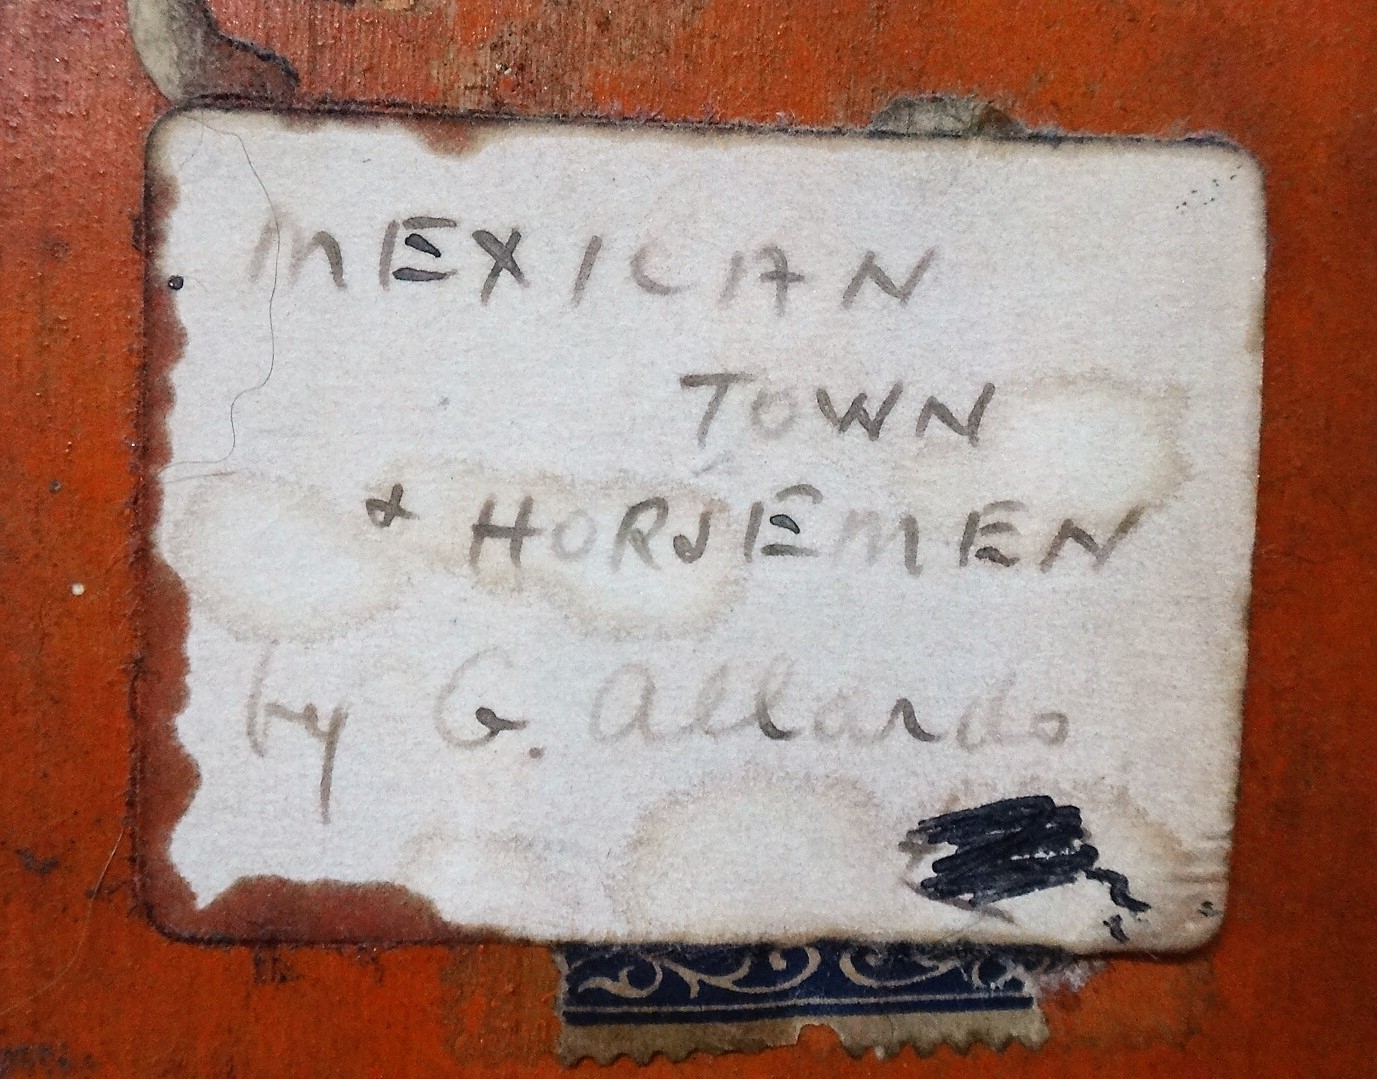 MEXICAN
TOWN
& HORSEMEN
by G. Allardo